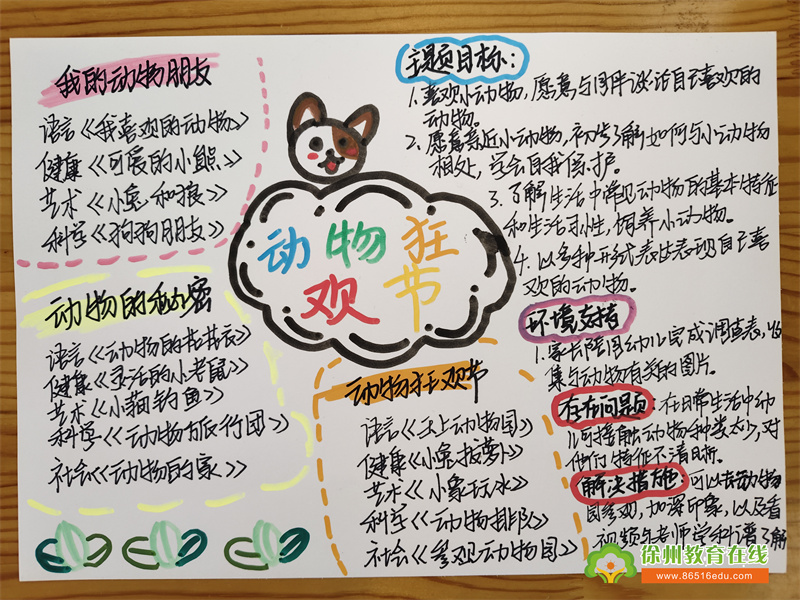 我的动物朋友
语言《我喜欢的动物》
健康《可爱的小熊》
艺术《小兔和狼》
科学《狗狗朋友》
动物的秘密
语言《动物的花花衣》
健康《灵活的小老鼠》
艺术《小猫钓鱼》
科学《动物旅行团》
社会《动物的家》
动物狂
欢节
动物狂欢节
语言《土上动物园》
健康《小兔拔萝卜》
艺术《小象玩水》
科学《动物排队》
社会《参观动物园》
主题目标:
1.喜欢小动物,愿意与同伴谈话自己喜欢的
动物。
2.愿意亲近小动物,初步了解如何与小动物
相处,学会自我保护。
3.了解生活中常见动物的基本特征
和生活习性,饲养小动物。
4.以多种形式表达表现自己喜
欢的动物。
环境支持
1.家长陪同幼儿完成调查表,收
集与动物有关的图片。
存在问题:在日常生活中幼
儿可接触动物种类太少,对
他们特征不清晰。
解决措施:可以去动物
园参观,加深印象,以及看
视频与老师学科谱了解
徐州教育在线
www.86516edu.com